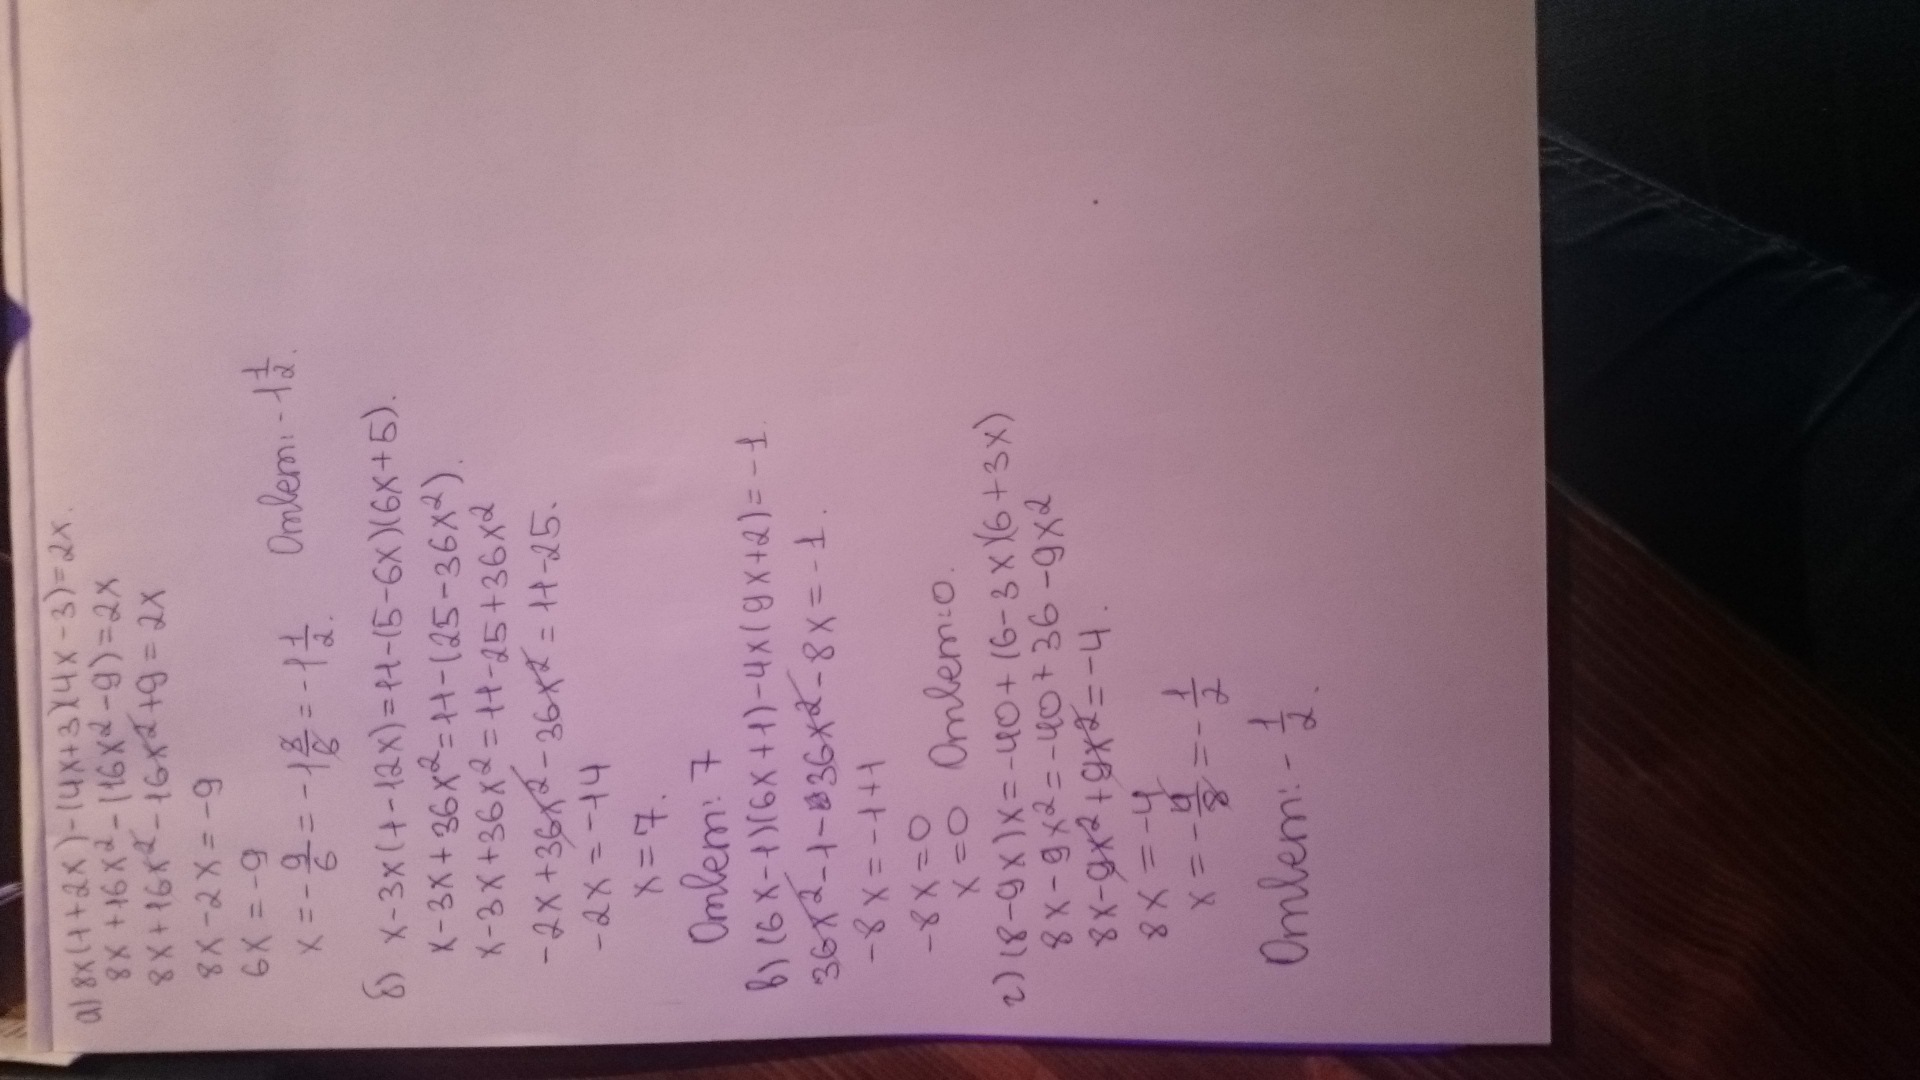 а) 8x(1+2x)-(4x+3)(4x-3)=2x.
8x+16x²-(16x²-9)=2x
8x+16x²-16x²+9=2x
8x-2x=-9
6x=-9
x=-9/6=-1 3/6=-1 1/2. Ответ: -1 1/2.
б) x-3x(1-12x)=11-(5-6x)(6x+5).
x-3x+36x²=11-(25-36x²).
x-3x+36x²=11-25+36x²
-2x+36x²-36x²=11-25.
-2x=-14
x=7.
Ответ: 7
в) (6x-1)(6x+1)-4x(9x+2)=-1.
36x²-1-36x²-8x=-1.
-8x=-1+1
-8x=0
x=0 Ответ:0.
г) (8-9x)x=-40+(6-3x)(6+3x)
8x-9x²=-40+36-9x²
8x-9x²+9x²=-4.
8x=-4
x=-4/8=-1/2
Ответ: -1/2.